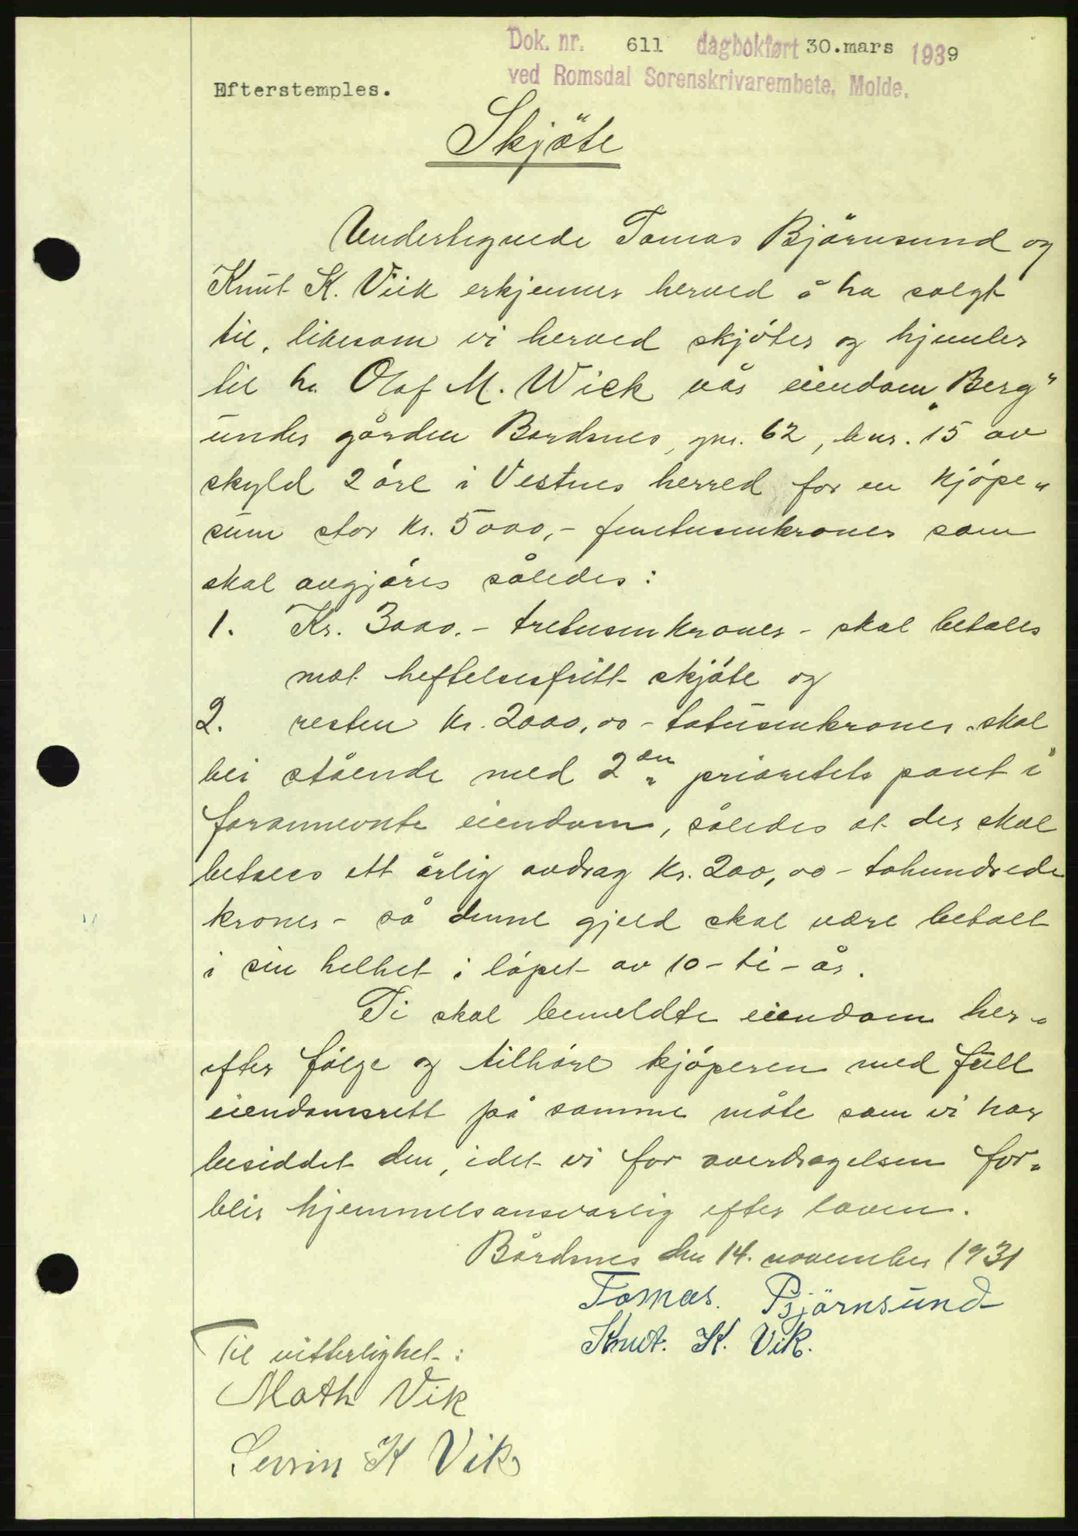 Dok. nr. 611 dagbokført 30.mars 1939
ved Romsdal Sorenskrivarembete, Molde.
Efterstemples.
Skjöte
Undertegnede Tomas Björnsund og
Knut K. Viik erkjenner herved å ha solgt
til, likesom vi herved skjöter og hjemler
til hr. Olaf M. Wick vår eiendom „Berg"
under gården Bordsnes, gnr. 62, bnr. 15 av
skyld 2 öre i Vestnes herred for en kjöpe„
sum stor kr. 5000,- femtusenkroner som
skal avgjöres således:
1. Kr. 3000.- tretusenkroner - skal betales
mot heftelsesfritt skjöte og
2. resten kr. 2000,00 - totusenkroner - skal
bli stående med 2 en prioritets pant i
forannevnte eiendom, således at der skal
betales ett årlig avdrag kr. 200,00 - tohundrede
kroner - så denne gjeld skal være betalt
i sin helhet i löpet av 10 - ti - år.
Ti skal bemeldte eiendom her„
efter fölge og tilhöre kjöperen med full
eiendomsrett på samme måte som vi har
besiddet den, idet vi for overdragelsen for„
blir hjemmelsansvarlig efter loven.
Bårdsnes den 14. november 1931
Tomas. Björnsund
Knut. K. Vik.
Til vitterlighet:
Math Vik
Sevrin K Vik